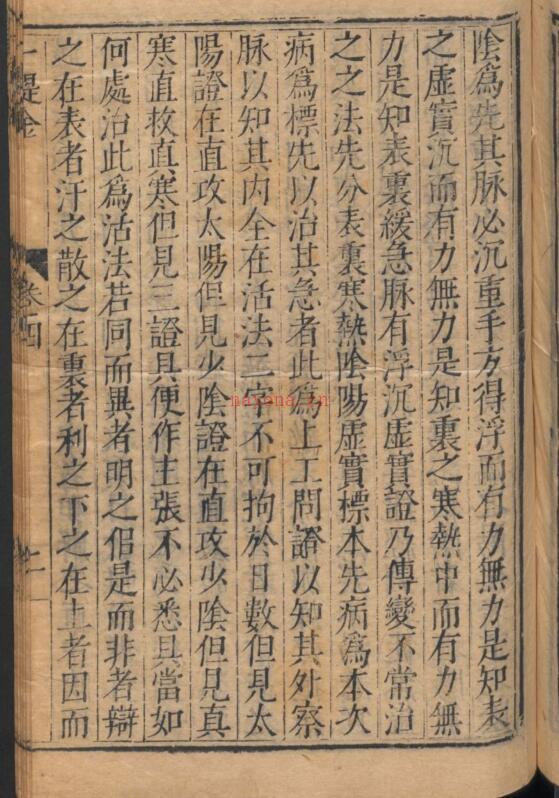 陰爲先其脉必沉重手方得浮而有力無力是知表
之虛實沉而有力無力是知裏之寒熱中而有力無
力是知表裏緩急脉有浮沉虛實證乃傳變不常治
之之法先分表裏寒熱陰陽虛實標本先病爲本次
病爲標先以治其急者此爲上工問證以知其外察
脉以知其内全在活法二字不可拘於日數但見太
陽證在直攻太陽但見少陰證在直攻少陰但見真
寒直救真寒但見三證具便作主張不必悉具當如
何處治此爲活法若同而異者明之佀是而非者辯
之在表者汗之散之在裏者利之下之在上者因而
卷四
nayona.cn